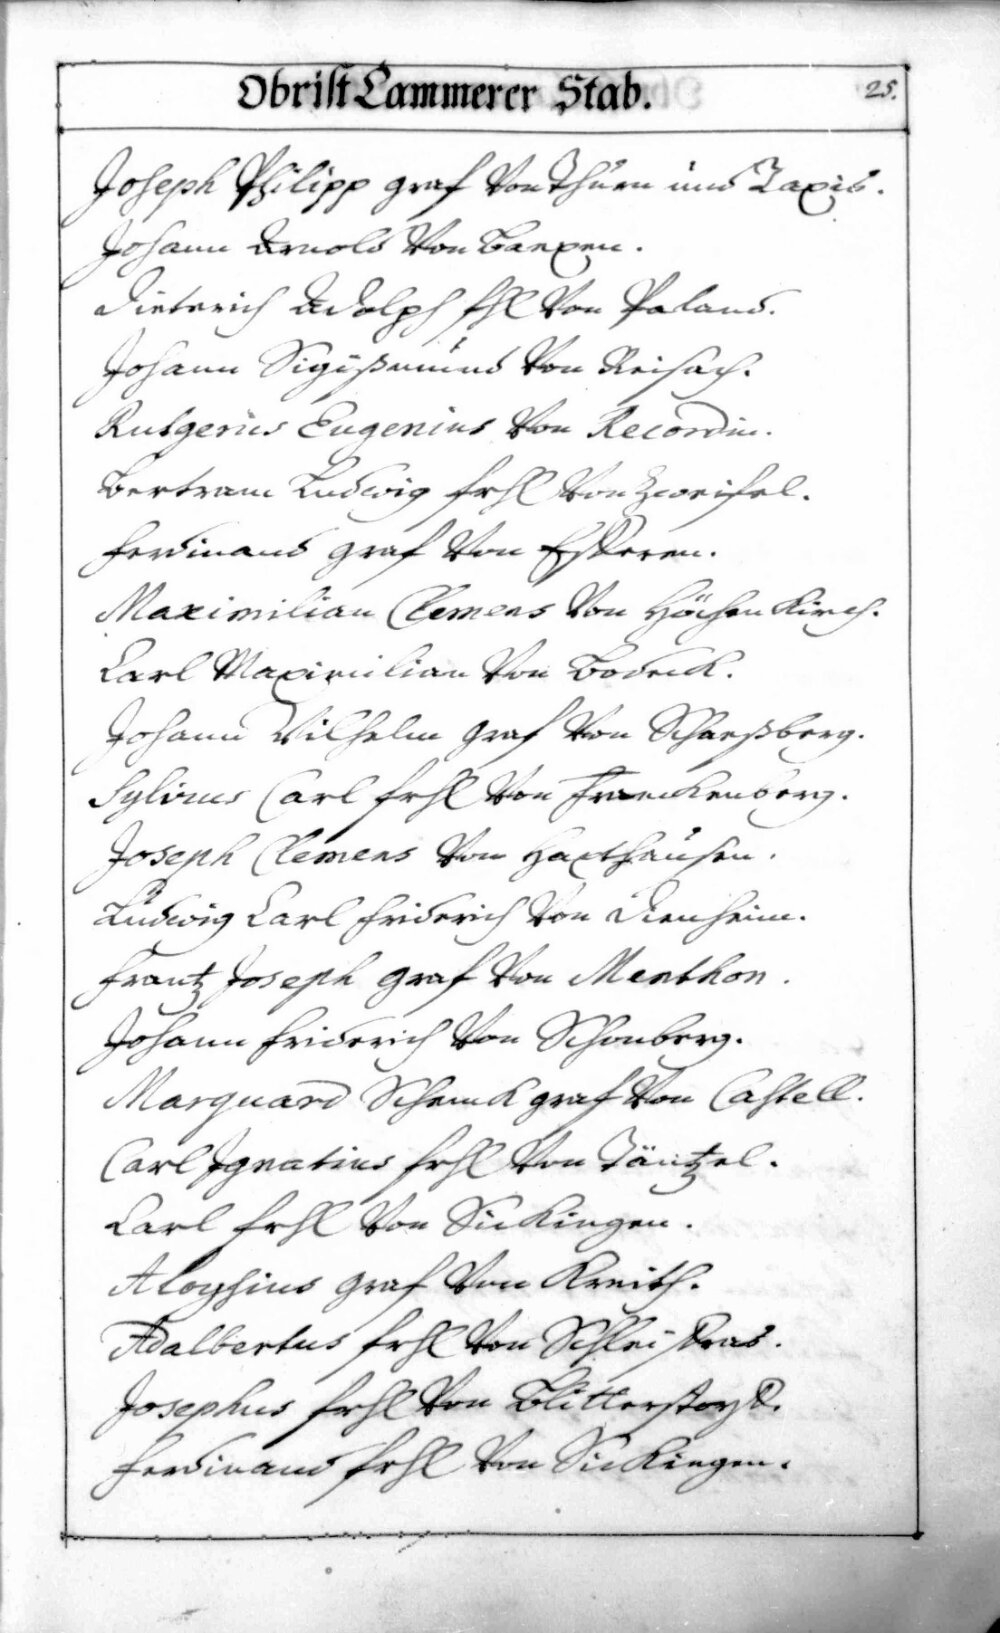 Obrist Cammerer Stab.
25.
Joseph Philipp graf Von Thurn und Taxis.
Johann Arnold Von Baexen.
Dieterich Adolph fhl Von Paland.
Johann Sigißmund Von Reisach.
Rutgerus Eugenius Von Recordin.
Bertram Ludwig frhl Von Zweifel.
Ferdinand graf Von Efferen.
Maximilian Clemens Von Höchenkirch.
Carl Maximilian Von Bodeck.
Johann Wilhelm graf Von Schaeßberg.
Sylvius Carl frhl Von Franckenberg.
Joseph Clemens Von Haxthausen.
Ludwig Carl Friderich Von Dienheim.
Frantz Joseph graf Von Menthon.
Johann Friderich Von Schonberg.
Marquard Schenck graf Von Castell.
Carl Ignatius frhl Von Täntzel.
Carl frhl Von Sickingen.
Aloysius graf Von Kreith.
Adalbertus frhl Von Schleisras.
Josephus frhl Von Blitterstorff.
Ferdinand frhl Von Sickingen.